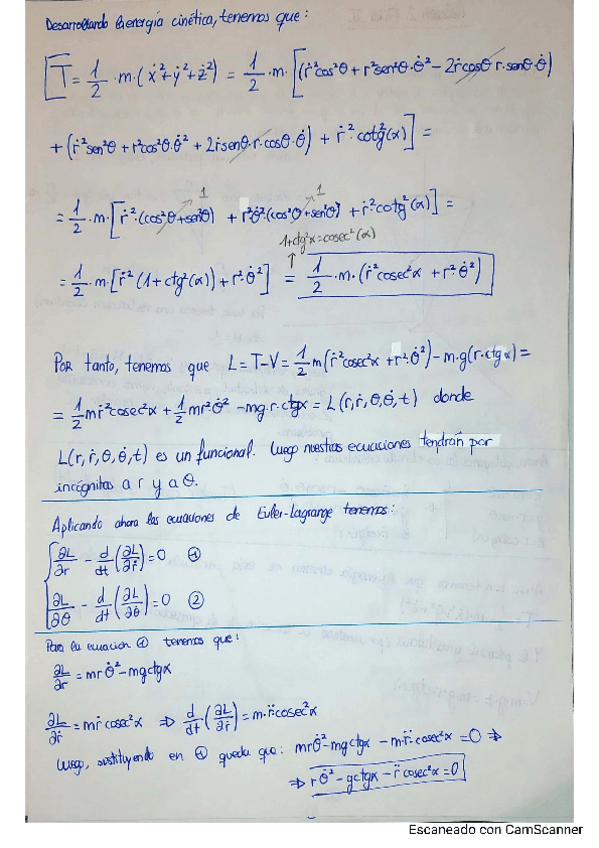 Desarrollando la energía cinética, tenemos que:
T = 1/2 · m · (ẋ² + ẏ² + ż²) = 1/2 · m · [(ṙ²cos²θ + r²sen²θ·θ̇² - 2ṙcosθ r·senθ·θ̇)
+ (ṙ²sen²θ + r²cos²θ·θ̇² + 2ṙsenθ·r·cosθ·θ̇) + ṙ²·cotg²(α)] =
= 1/2 · m · [ṙ²·(cos²θ + sen²θ) + r²θ̇²·(cos²θ + sen²θ) + ṙ²·cotg²(α)] =
1
1
1+ctg²α = cosec²(α)
= 1/2 · m · [ṙ²(1+ctg²(α)) + r²·θ̇²] = 1/2 · m · (ṙ²cosec²α + r²·θ̇²)
Por tanto, tenemos que L = T-V = 1/2 m(ṙ²cosec²α + r²·θ̇²) - m·g(r·ctgα) =
= 1/2 mṙ²cosec²α + 1/2 mr²θ̇² - mg·r·ctgα = L(r, ṙ, θ, θ̇, t) donde
L(r, ṙ, θ, θ̇, t) es un funcional. Luego nuestras ecuaciones tendrán por
incógnitas a r y a θ.
Aplicando ahora las ecuaciones de Euler-Lagrange tenemos:
∂L/∂r - d/dt (∂L/∂ṙ) = 0 ①
∂L/∂θ - d/dt (∂L/∂θ̇) = 0 ②
Para la ecuación ① tenemos que:
∂L/∂r = mrθ̇² - mgctgα
∂L/∂ṙ = mṙcosec²α ⇒ d/dt · (∂L/∂ṙ) = m·r̈cosec²α
Luego, sustituyendo en ① queda que: mrθ̇² - mgctgα - m·r̈·cosec²α = 0 ⇒
⇒ rθ̇² - gctgα - r̈cosec²α = 0
Escaneado con CamScanner